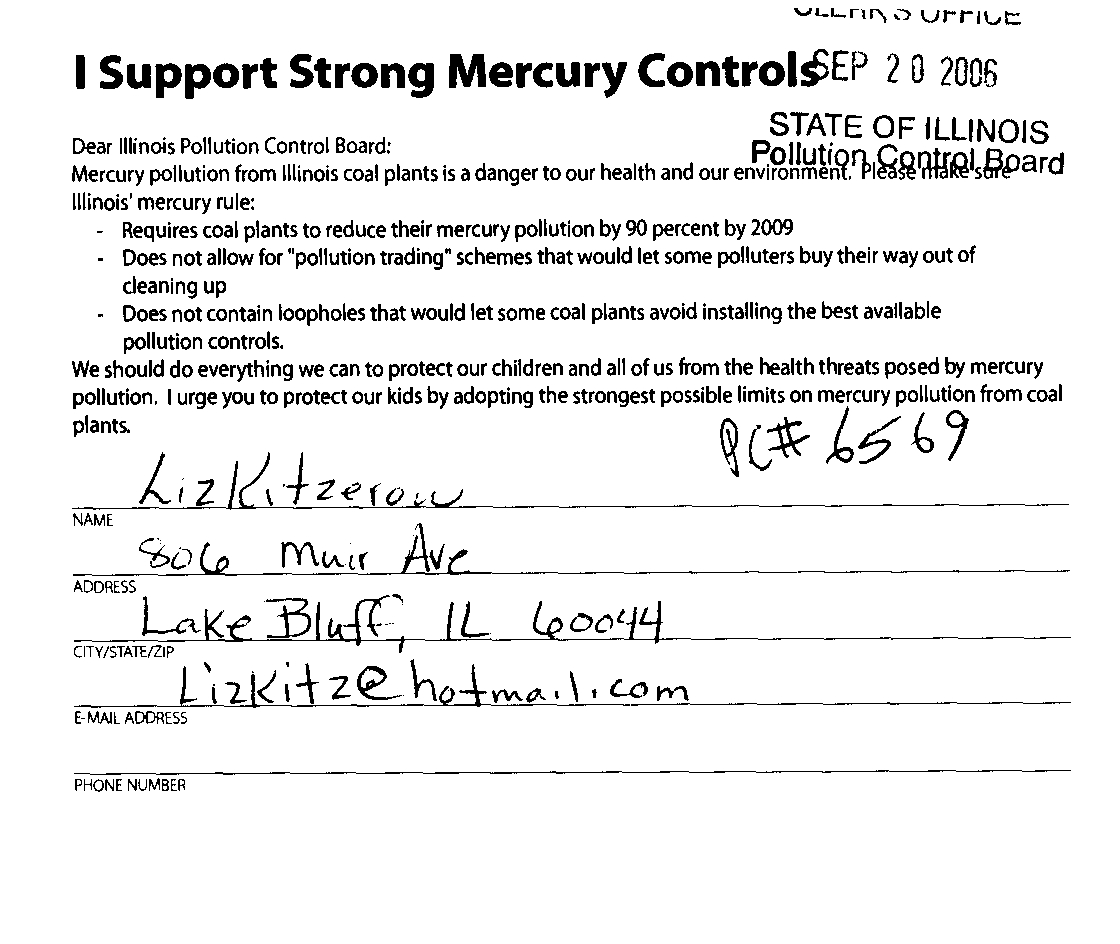 CLERK'S OFFICE
I Support Strong Mercury Controls
SEP 20 2006
STATE OF ILLINOIS
Pollution Control Board
Dear Illinois Pollution Control Board:
Mercury pollution from Illinois coal plants is a danger to our health and our environment. Please make sure
Illinois' mercury rule:
- Requires coal plants to reduce their mercury pollution by 90 percent by 2009
- Does not allow for "pollution trading" schemes that would let some polluters buy their way out of
cleaning up
- Does not contain loopholes that would let some coal plants avoid installing the best available
pollution controls.
We should do everything we can to protect our children and all of us from the health threats posed by mercury
pollution. I urge you to protect our kids by adopting the strongest possible limits on mercury pollution from coal
plants.
PC# 6569
Liz Kitzerow
NAME
806 Muir Ave
ADDRESS
Lake Bluff, IL 60044
CITY/STATE/ZIP
Lizkitz@hotmail.com
E-MAIL ADDRESS
PHONE NUMBER